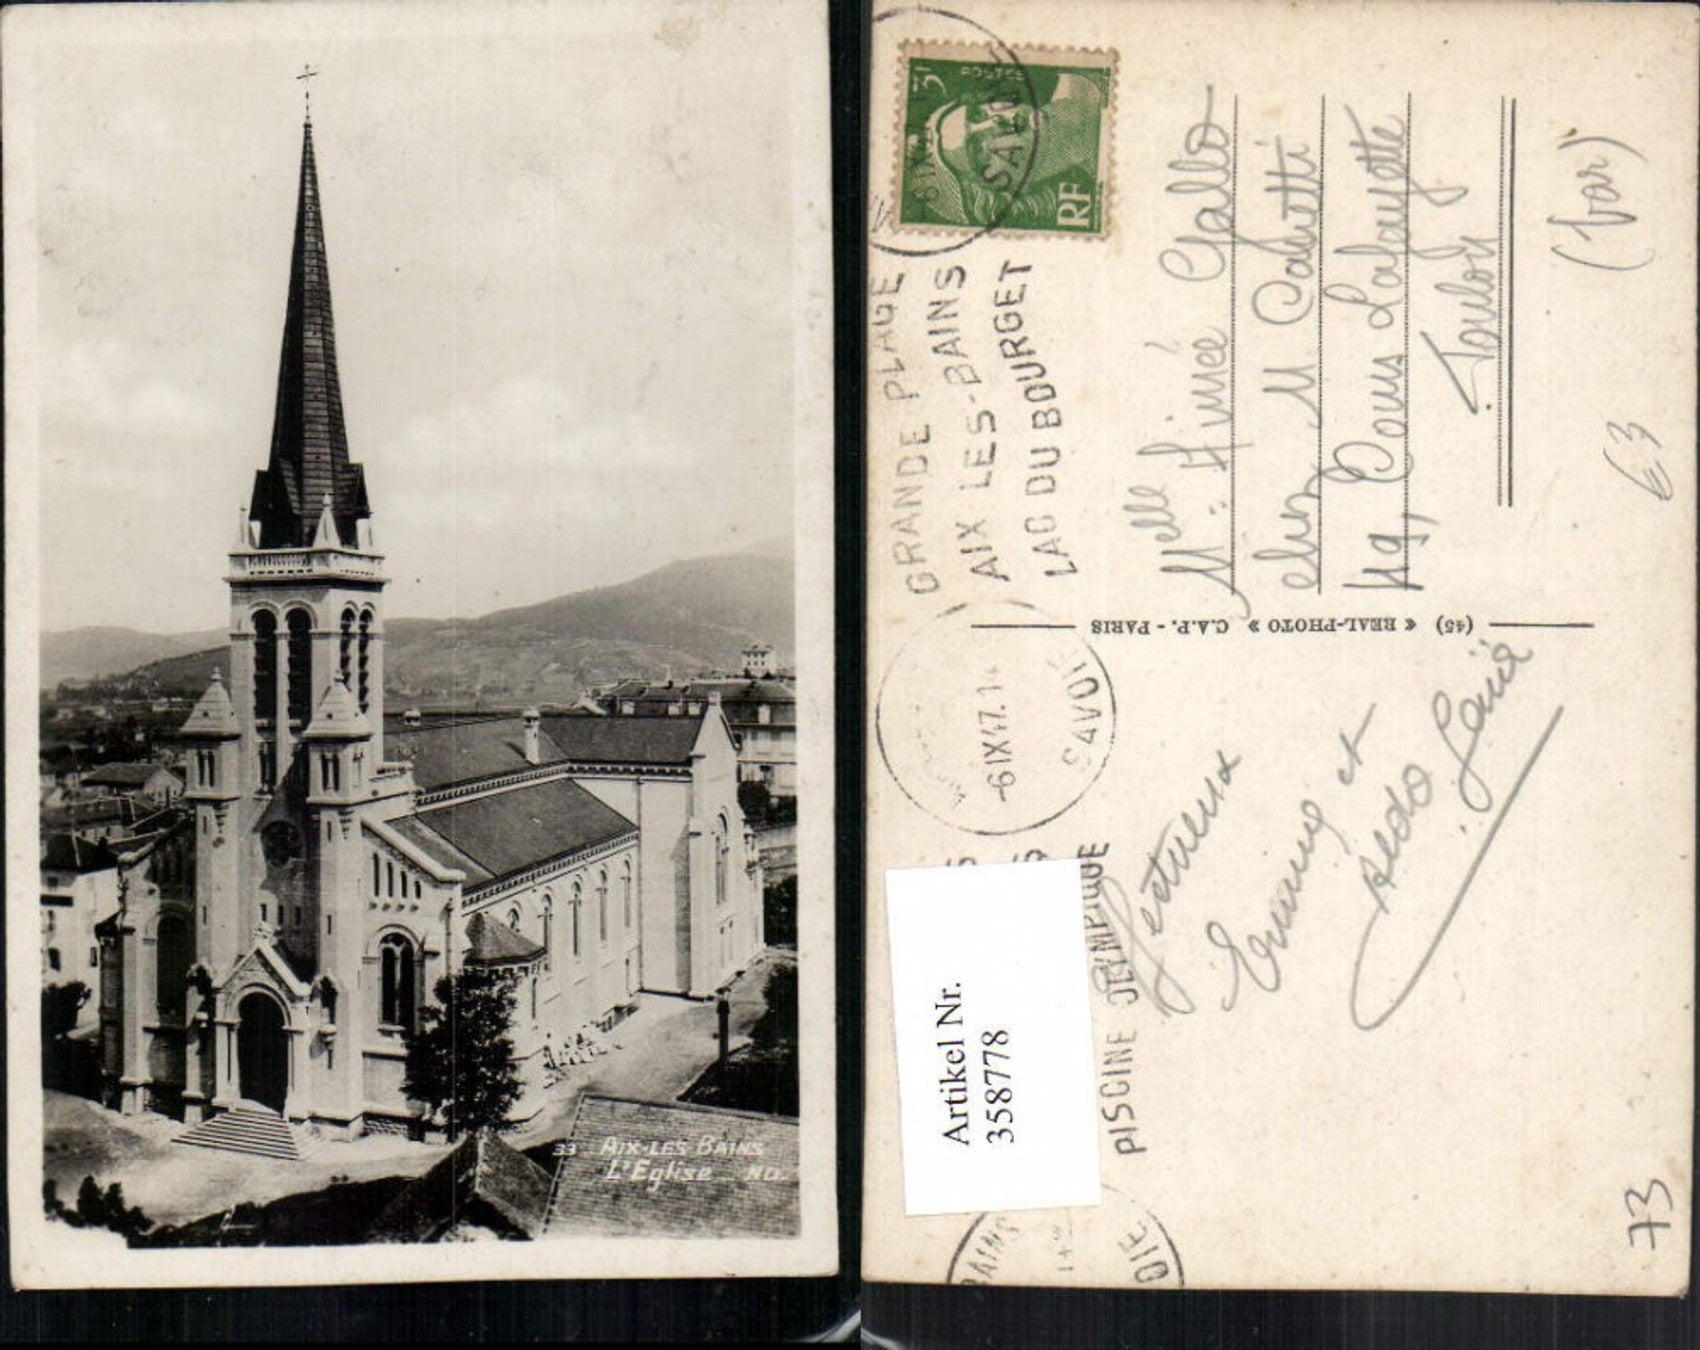 33 AIX-LES-BAINS
L'Eglise ND.
3F
POSTES
RF
SAVOIE
GRANDE PLAGE
AIX LES-BAINS
LAC DU BOURGET
-6 IX 47
SAVOIE
PISCINE OLYMPIQUE
BAINS
OIE
Melle Aimée Gallo
chez M Calvetti
49, Cours Lafayette
Toulon
(Var)
(45) « REAL-PHOTO » C.A.P. - PARIS
Affectueux
et
Aldo
Artikel Nr.
358778
63
73